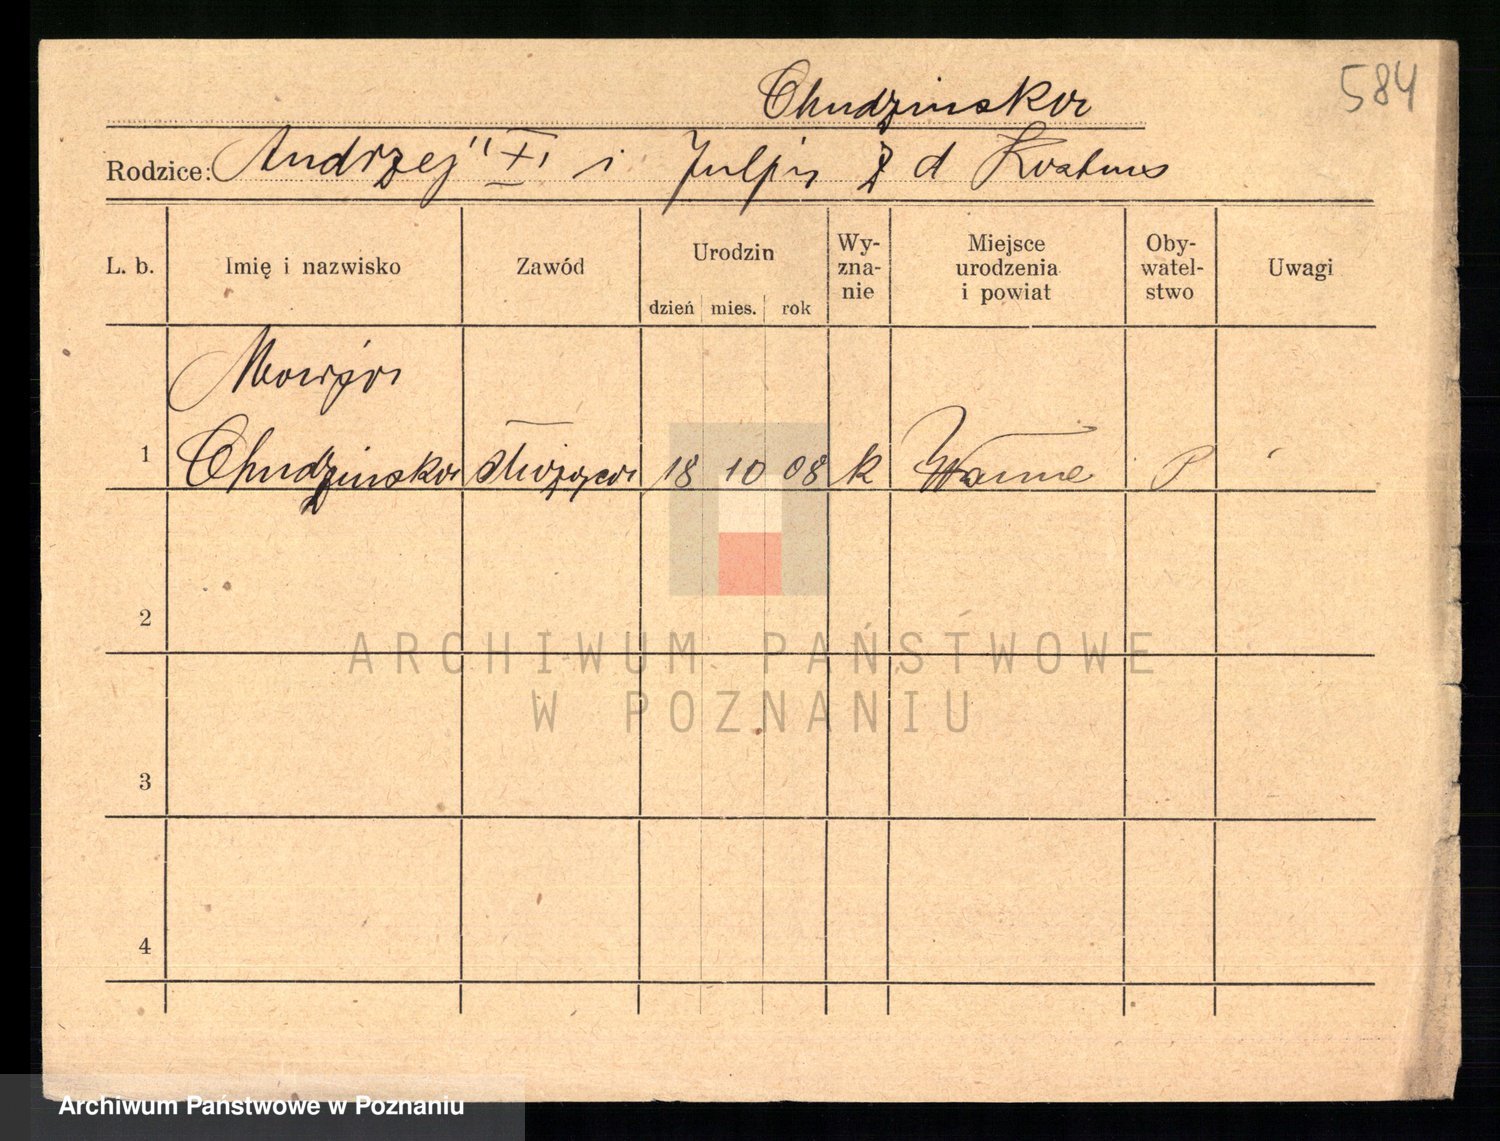 584
Chudzinska
Rodzice: Andrzej i Julja z d
L. b.
Imię i nazwisko
Zawód
Urodzin
dzień mies. rok
Wy-
zna-
nie
Miejsce
urodzenia
i powiat
Oby-
watel-
stwo
Uwagi
Marja
1 Chudzinska służąca 18 10 08 k Wanne P
2
ARCHIWUM PAŃSTWOWE
W POZNANIU
3
4
Archiwum Państwowe w Poznaniu